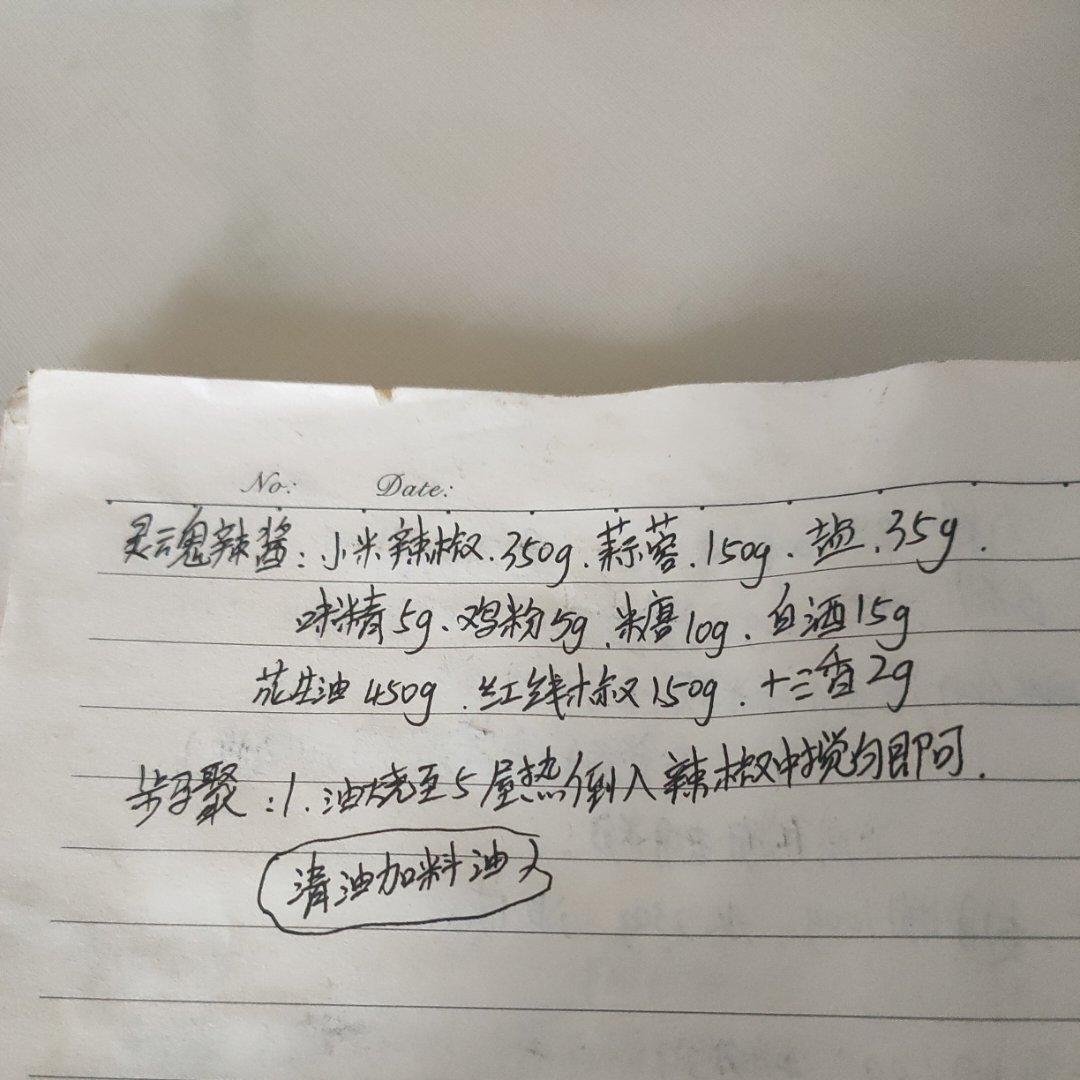 No: Date:
灵魂辣酱:小米辣椒.350g.蒜蓉.150g.盐.35g.
味精5g.鸡粉5g.米糖10g.白酒15g
花生油450g.红线椒150g.十三香2g
步骤:1.油烧至5层热倒入辣椒中搅匀即可.
清油加料油